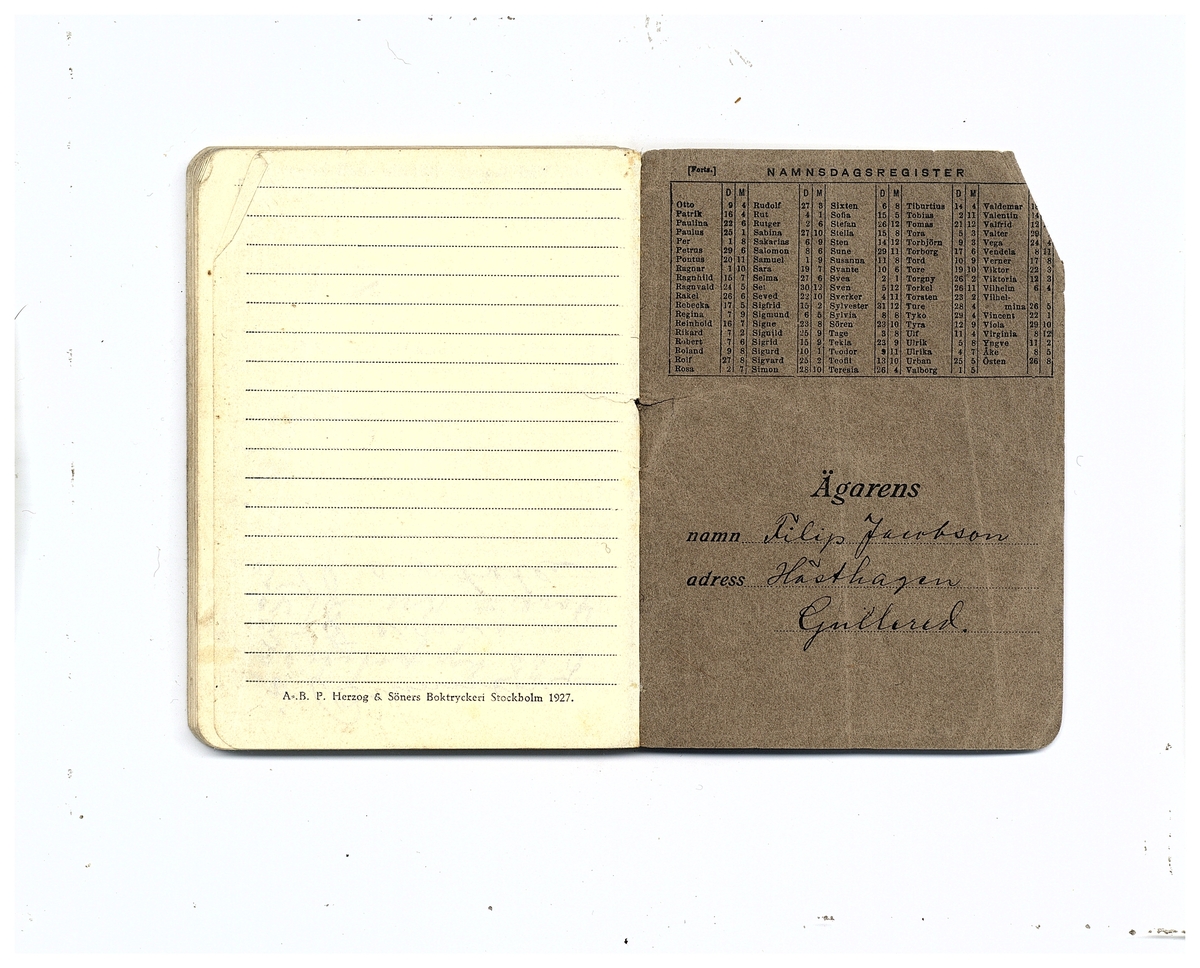 A.-B. P. Herzog & Söners Boktryckeri Stockholm 1927.
[Forts.] NAMNSDAGSREGISTER
D M D M D M D M
Otto 9 4 Rudolf 27 3 Sixten 6 8 Tiburtius 14 4 Valdemar
Patrik 16 4 Rut 4 1 Sofia 15 5 Tobias 2 11 Valentin
Paulina 22 6 Rutger 2 6 Stefan 26 12 Tomas 21 12 Valfrid
Paulus 25 1 Sabina 27 10 Stella 15 8 Tora 5 3 Valter
Per 1 8 Sakarias 6 9 Sten 14 12 Torbjörn 9 3 Vega 24 4
Petrus 29 6 Salomon 8 6 Sune 29 11 Torborg 17 6 Vendela 8 11
Pontus 20 11 Samuel 1 9 Susanna 11 8 Tord 10 9 Verner 17 8
Ragnar 1 10 Sara 19 7 Svante 10 6 Tore 19 10 Viktor 22 3
Ragnhild 15 7 Selma 27 6 Svea 2 1 Torgny 26 2 Viktoria 12 3
Ragnvald 24 5 Set 30 12 Sven 5 12 Torkel 26 11 Vilhelm 6 4
Rakel 26 6 Seved 22 10 Sverker 4 11 Torsten 23 2 Vilhel-
Rebecka 17 5 Sigfrid 15 2 Sylvester 31 12 Ture 28 4 mina 26 5
Regina 7 9 Sigmund 6 5 Sylvia 8 8 Tyko 29 4 Vincent 22 1
Reinhold 16 7 Signe 23 8 Sören 23 10 Tyra 12 9 Viola 29 10
Rikard 7 2 Sigrid 25 9 Tage 3 8 Ulf 11 4 Virginia 8 12
Robert 7 6 Sigrid 15 9 Tekla 23 9 Ulrik 5 8 Yngve 11 2
Roland 9 8 Sigurd 10 1 Teodor 9 11 Ulrika 4 7 Åke 8 5
Rolf 27 8 Sigvard 25 2 Teofil 13 10 Urban 25 5 Östen 26 8
Rosa 2 7 Simon 28 10 Teresia 26 4 Valborg 1 5
Ägarens
namn Filip Jacobson
adress Hästhagen
Gullered.